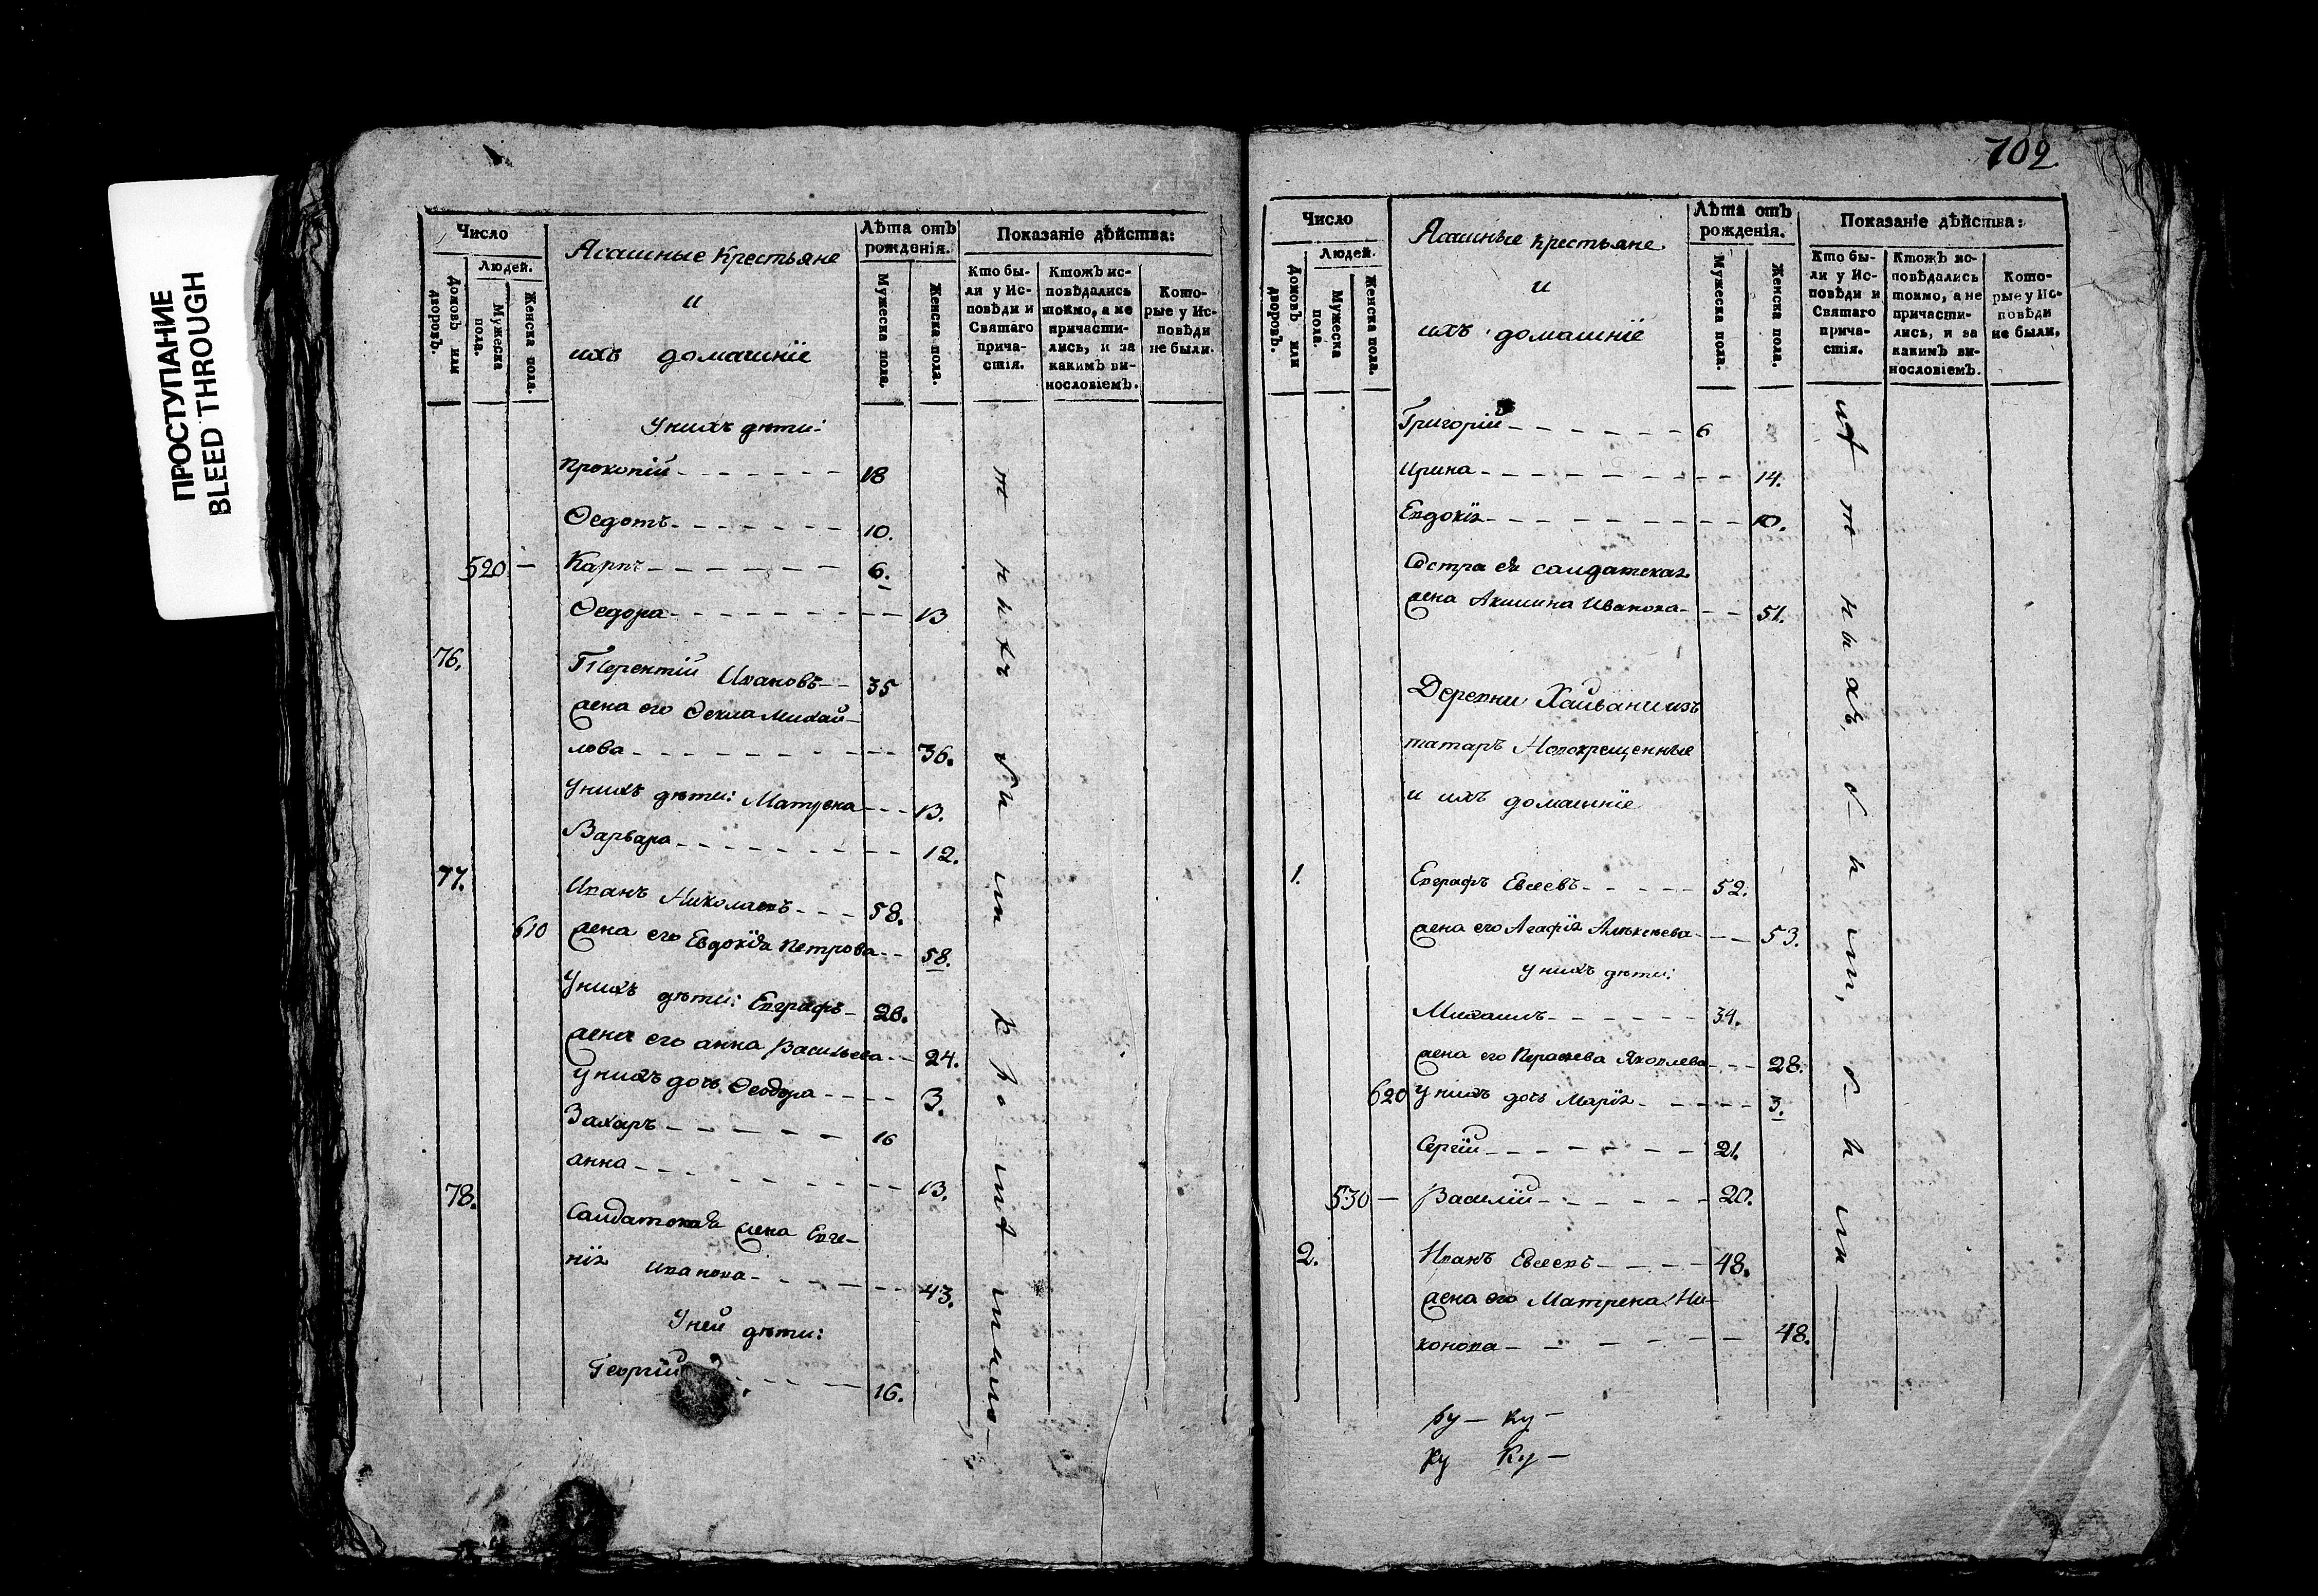 ПРОСТУПАНИЕ
BLEED THROUGH
Число
Людей.
Домовъ или дворовъ.
Мужеска пола.
Женска пола.
Ясашные крестьяне
и
ихъ домашніе
Лѣта отъ рожденія.
Мужеска пола.
Женска пола.
Показаніе дѣйства:
Кто были у Исповѣди и Святаго причастія.
Ктожъ исповѣдались токмо, а не причастились, и за какимъ винословіемъ.
Которые у Исповѣди не были.
У нихъ дѣти:
Прокопій 18
Ѳедотъ 10.
520 — Карпъ 6.
Ѳедора 13
76. Терентій Ивановъ 35
жена его Ѳекла Михай-
лова 36.
У нихъ дѣти: Матрена 13.
Варвара 12.
77. Иванъ Николаевъ 58.
610 жена его Евдокія Петрова 58.
У нихъ дѣти: Евграфъ
жена его анна Васильева 24.
у нихъ дочь Ѳеодора 3.
Захаръ 16
анна 13.
78. Салдатская жена Евге-
нія Иванова 43.
У ней дѣти:
Георгій 16.
702
Число
Людей.
Домовъ или дворовъ.
Мужеска пола.
Женска пола.
Ясашные крестьяне
и
ихъ домашніе
Лѣта отъ рожденія.
Мужеска пола.
Женска пола.
Показаніе дѣйства:
Кто были у Исповѣди и Святаго причастія.
Ктожъ исповѣдались токмо, а не причастились, и за какимъ винословіемъ.
Которые у Исповѣди не были.
Григорій 6
Ирина 14.
Евдокія 10.
Сестра ея салдатская
жена Акилина Иванова 51.
Деревни Хайвани изъ
татаръ Новокрещенные
и ихъ домашніе
1. Евграфъ Евсеевъ 52.
жена его Агафія Алексѣева 53.
у нихъ дѣти:
Михаилъ
жена его Парасковья Яковлева 28.
620 у нихъ дочь Марія 3.
Сергій 21.
530 — Василій 20.
2. Иванъ Евсеевъ 48.
жена его Матрена Ни-
конова 48.